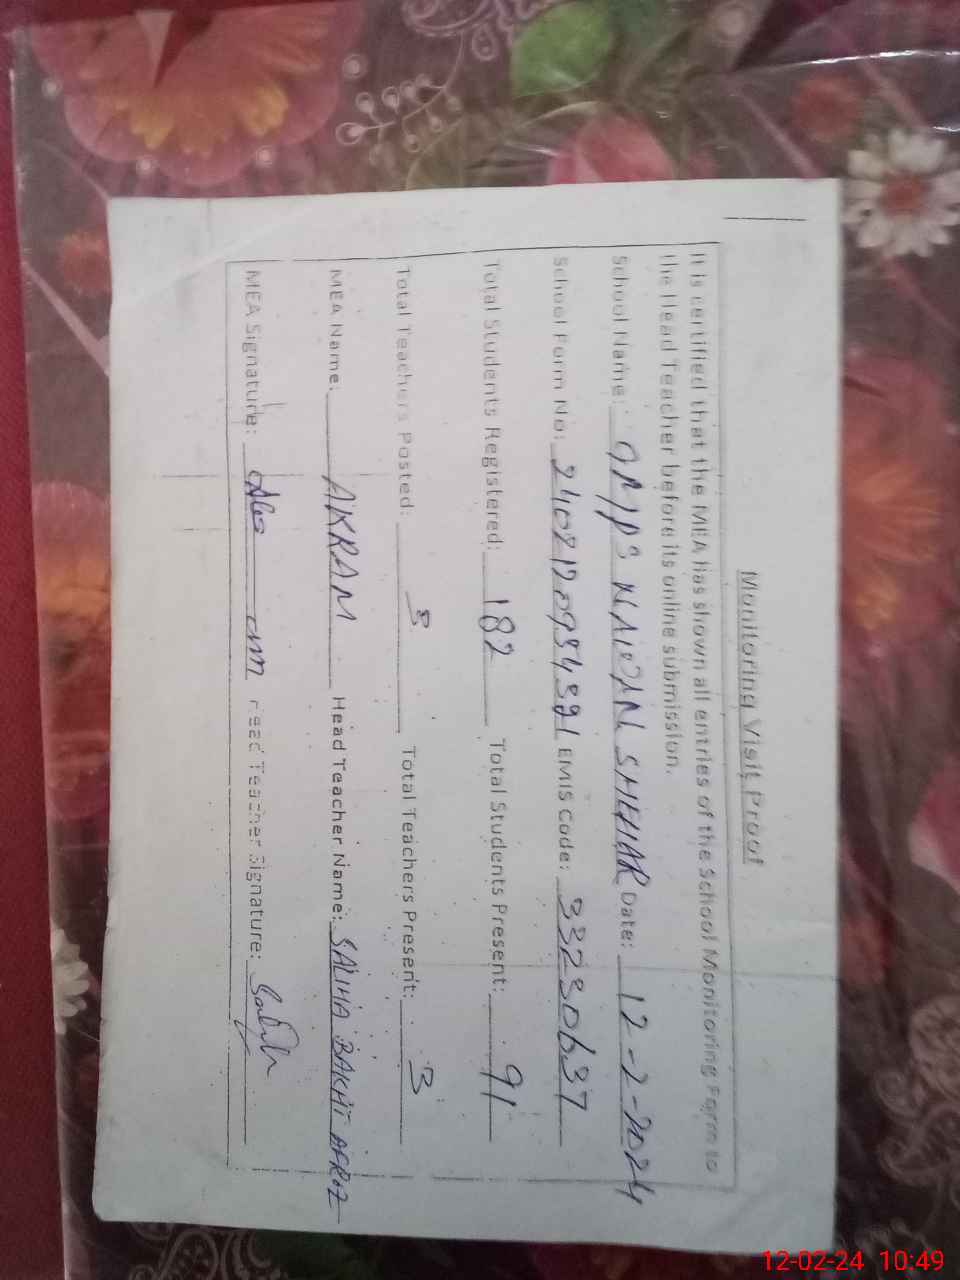 Monitoring Visit Proof
It is certified that the MEA has shown all entries of the School Monitoring Form to
the Head Teacher before its online submission.
School Name: GMPS SHEHAR Date: 12-2-2024
School Form No: EMIS Code: 33230637
Total Students Registered: 182 Total Students Present: 91
Total Teachers Posted: 3 Total Teachers Present: 3
MEA Name: AKRAM Head Teacher Name: SALIHA BAKHT AFROZ
MEA Signature: Head Teacher Signature:
12-02-24 10:49